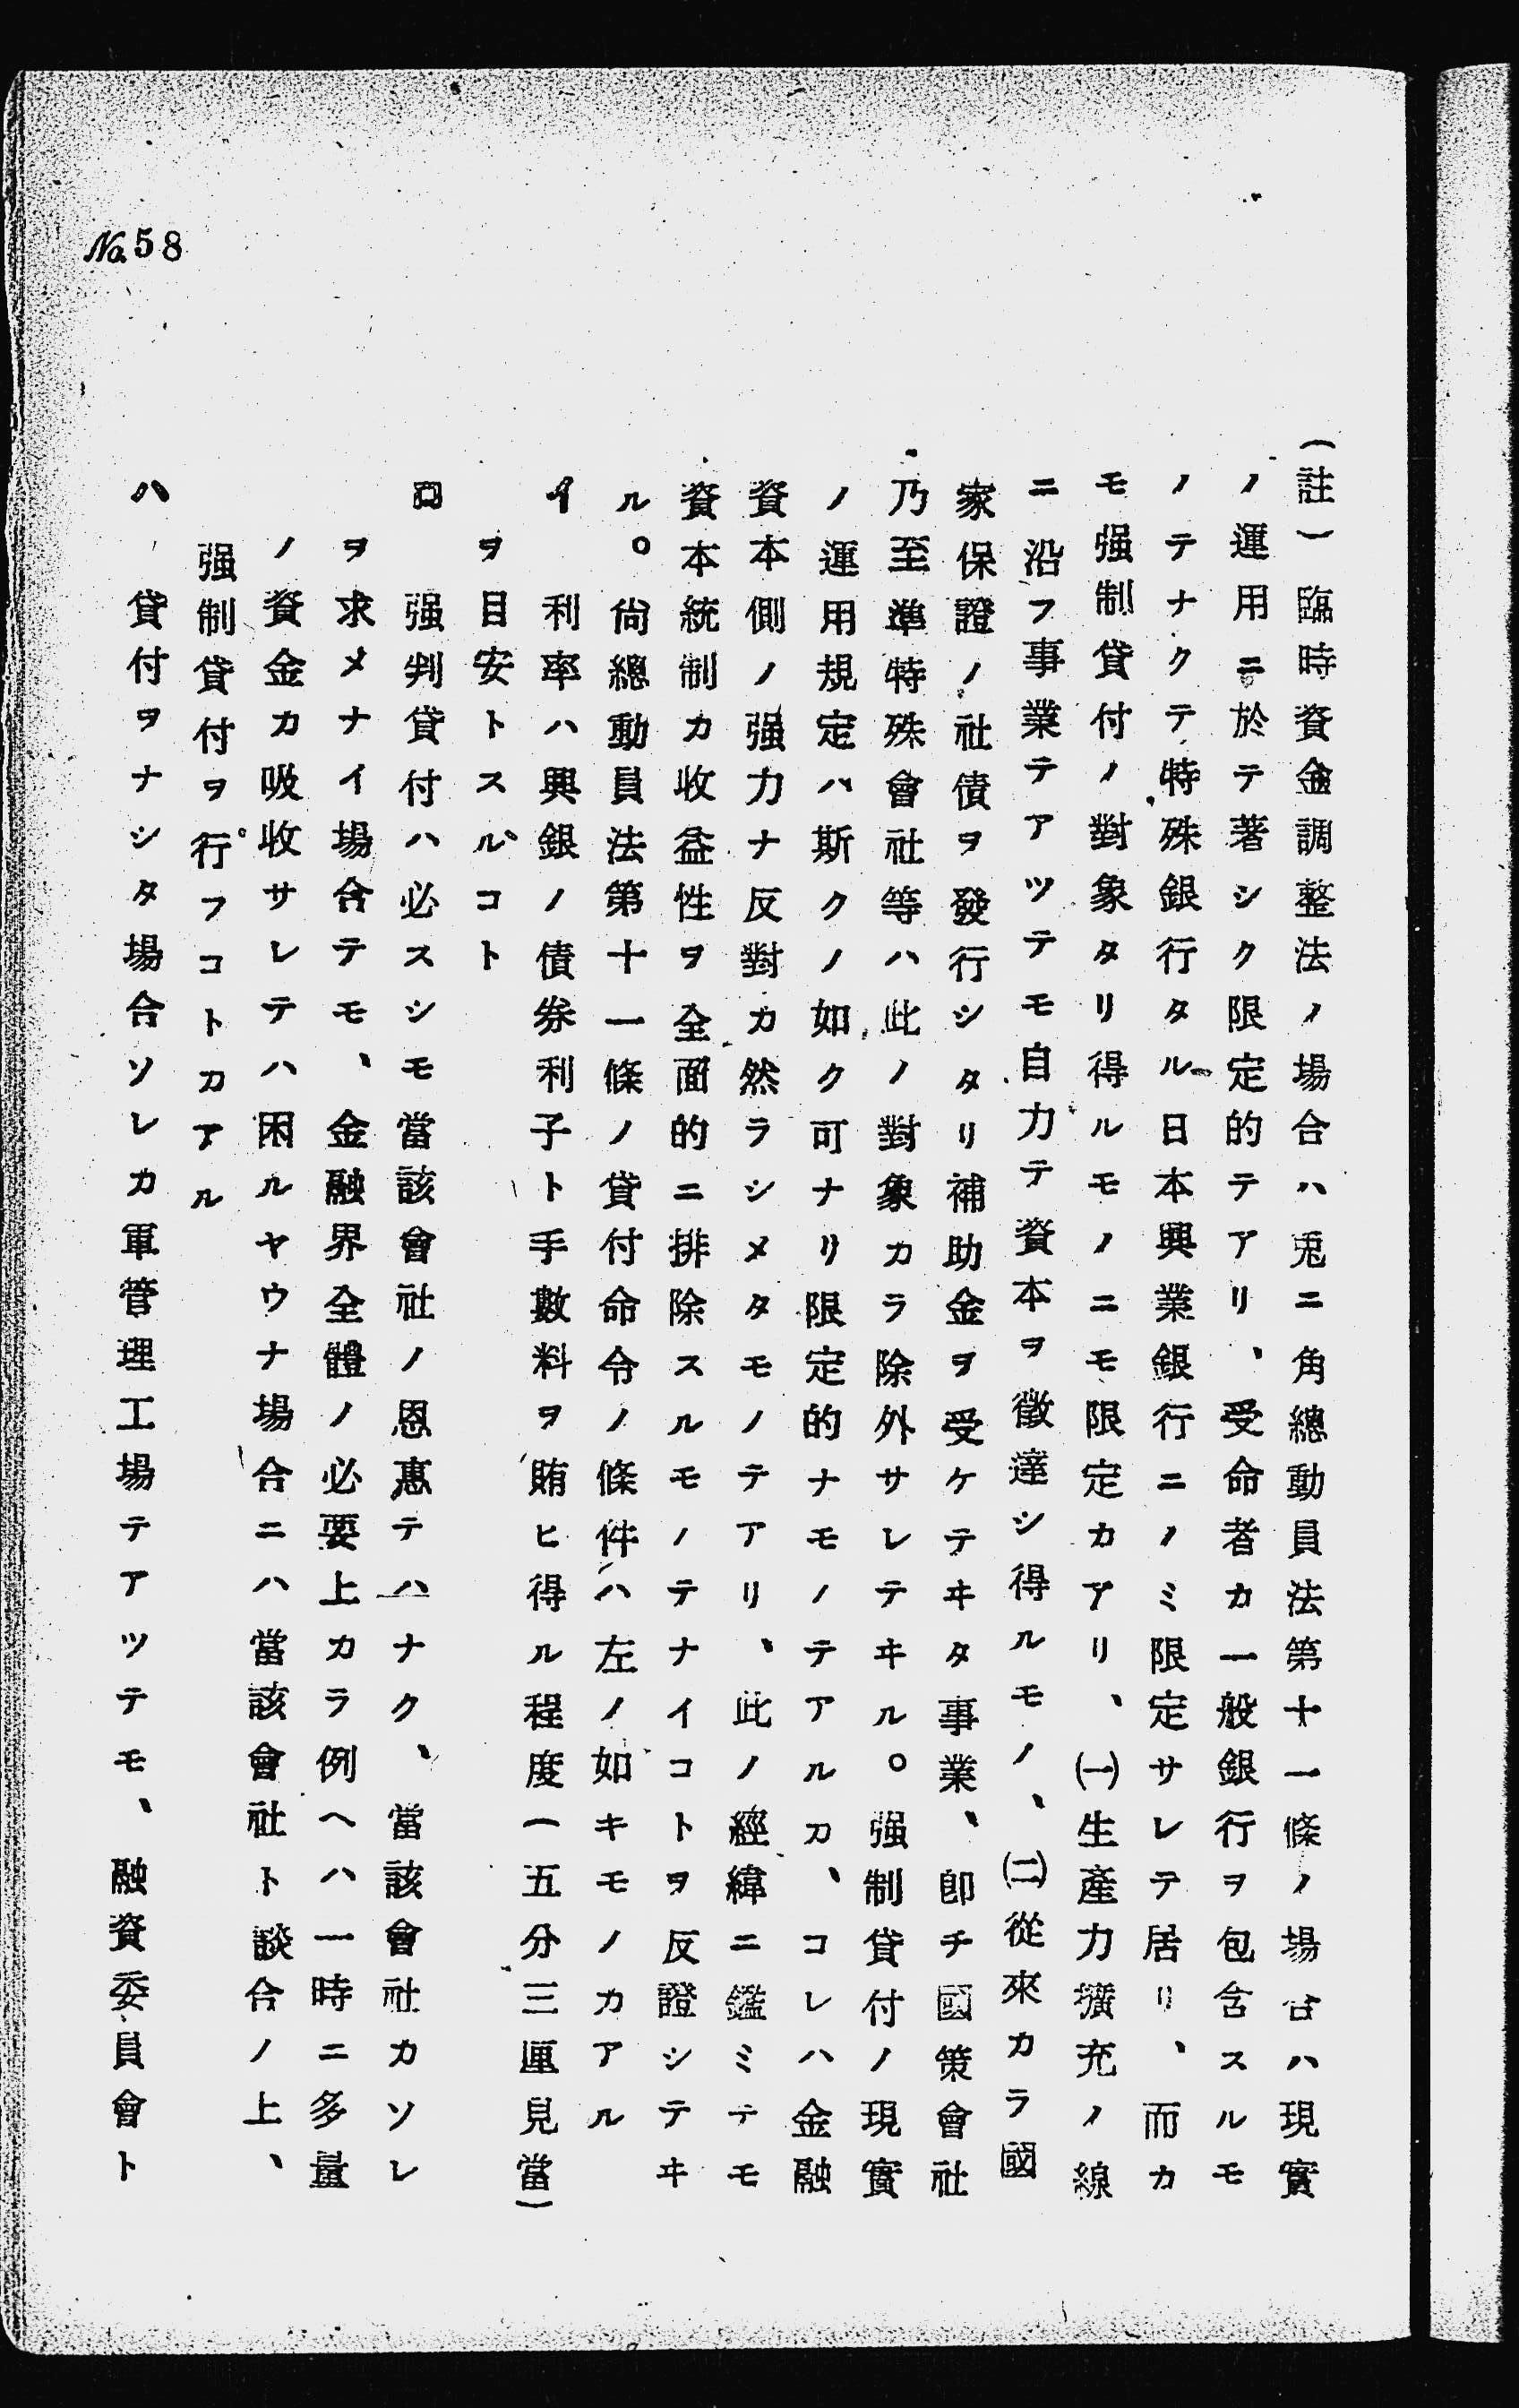 (註)臨時資金調整法ノ場合ハ兎ニ角總動員法第十一條ノ場合ハ現實
ノ運用ニ於テ著シク限定的テアリ、受命者カ一般銀行ヲ包含スルモ
ノテナクテ特殊銀行タル日本興業銀行ニノミ限定サレテ居リ、而カ
モ强制貸付ノ對象タリ得ルモノニモ限定カアリ、㈠生產力擴充ノ線
ニ沿フ事業テアツテモ自力テ資本ヲ徵達シ得ルモノ、㈡從來カラ國
家保證ノ社債ヲ發行シタリ補助金ヲ受ケテヰタ事業、卽チ國策會社
乃至準特殊會社等ハ此ノ對象カラ除外サレテヰル。强制貸付ノ現實
ノ運用規定ハ斯クノ如ク可ナリ限定的ナモノテアルカ、コレハ金融
資本側ノ强力ナ反對カ然ラシメタモノテアリ、此ノ經緯ニ鑑ミテモ
資本統制カ收益性ヲ全面的ニ排除スルモノテナイコトヲ反證シテヰ
ル。尙總動員法第十一條ノ貸付命令ノ條件ハ左ノ如キモノカアル
イ 利率ハ興銀ノ債券利子ト手數料ヲ賄ヒ得ル程度(五分三厘見當)
ヲ目安トスルコト
ロ 强判貸付ハ必スシモ當該會社ノ恩惠テハナク、當該會社カソレ
ヲ求メナイ場合テモ、金融界全體ノ必要上カラ例ヘハ一時ニ多量
ノ資金カ吸收サレテハ困ルヤウナ場合ニハ當該會社ト談合ノ上、
强制貸付ヲ行フコトカアル
ハ 貸付ヲナシタ場合ソレカ軍管理工場テアツテモ、融資委員會ト
No.58